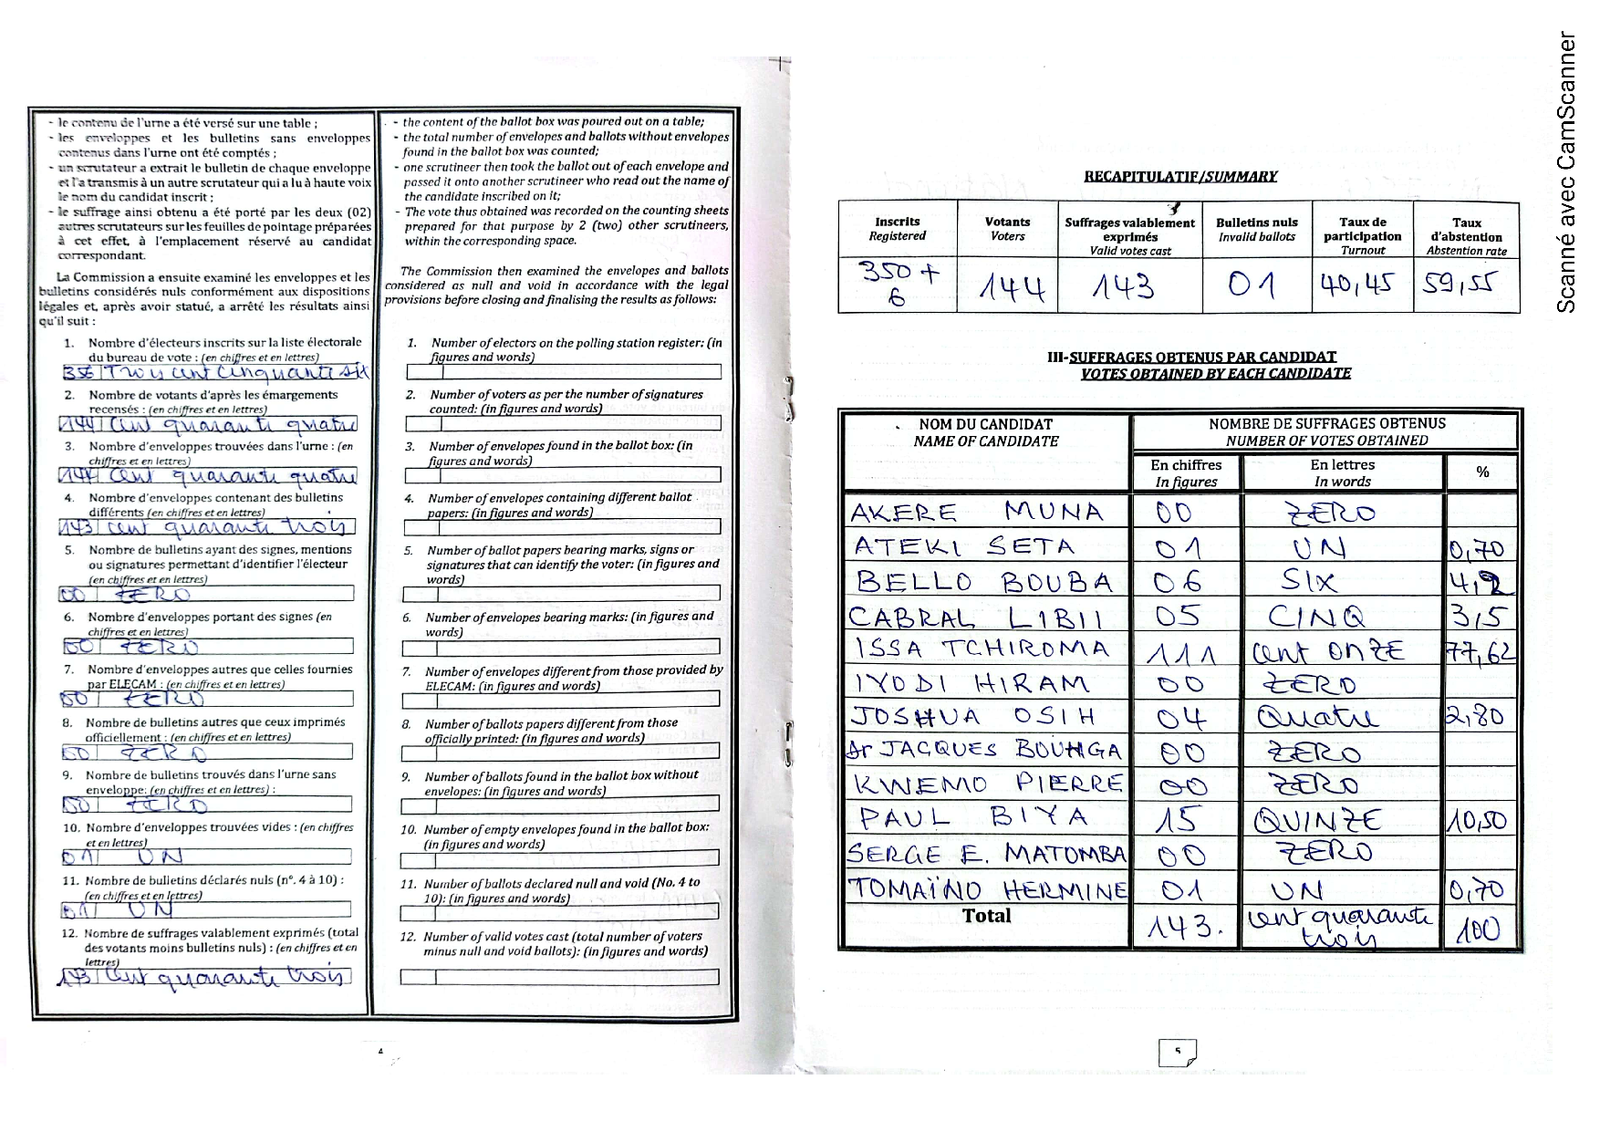 - le contenu de l'urne a été versé sur une table ;
- les enveloppes et les bulletins sans enveloppes
contenus dans l'urne ont été comptés ;
- un scrutateur a extrait le bulletin de chaque enveloppe
et l'a transmis à un autre scrutateur qui a lu à haute voix
le nom du candidat inscrit ;
- le suffrage ainsi obtenu a été porté par les deux (02)
autres scrutateurs sur les feuilles de pointage préparées
à cet effet, à l'emplacement réservé au candidat
correspondant.
La Commission a ensuite examiné les enveloppes et les
bulletins considérés nuls conformément aux dispositions
légales et, après avoir statué, a arrêté les résultats ainsi
qu'il suit :
1. Nombre d'électeurs inscrits sur la liste électorale
du bureau de vote : (en chiffres et en lettres)
356 Trois cent Cinquante six
2. Nombre de votants d'après les émargements
recensés : (en chiffres et en lettres)
144 Cent quarante quatre
3. Nombre d'enveloppes trouvées dans l'urne : (en
chiffres et en lettres)
144 Cent quarante quatre
4. Nombre d'enveloppes contenant des bulletins
différents (en chiffres et en lettres)
143 cent quarante trois
5. Nombre de bulletins ayant des signes, mentions
ou signatures permettant d'identifier l'électeur
(en chiffres et en lettres)
00 ZERO
6. Nombre d'enveloppes portant des signes (en
chiffres et en lettres)
00 ZERO
7. Nombre d'enveloppes autres que celles fournies
par ELECAM : (en chiffres et en lettres)
00 ZERO
8. Nombre de bulletins autres que ceux imprimés
officiellement : (en chiffres et en lettres)
00 ZERO
9. Nombre de bulletins trouvés dans l'urne sans
enveloppe: (en chiffres et en lettres) :
00 ZERO
10. Nombre d'enveloppes trouvées vides : (en chiffres
et en lettres)
01 UN
11. Nombre de bulletins déclarés nuls (n°. 4 à 10) :
(en chiffres et en lettres)
01 UN
12. Nombre de suffrages valablement exprimés (total
des votants moins bulletins nuls) : (en chiffres et en
lettres)
143 Cent quarante trois
- the content of the ballot box was poured out on a table;
- the total number of envelopes and ballots without envelopes
found in the ballot box was counted;
- one scrutineer then took the ballot out of each envelope and
passed it onto another scrutineer who read out the name of
the candidate inscribed on it;
- The vote thus obtained was recorded on the counting sheets
prepared for that purpose by 2 (two) other scrutineers,
within the corresponding space.
The Commission then examined the envelopes and ballots
considered as null and void in accordance with the legal
provisions before closing and finalising the results as follows:
1. Number of electors on the polling station register: (in
figures and words)
2. Number of voters as per the number of signatures
counted: (in figures and words)
3. Number of envelopes found in the ballot box: (in
figures and words)
4. Number of envelopes containing different ballot
papers: (in figures and words)
5. Number of ballot papers bearing marks, signs or
signatures that can identify the voter: (in figures and
words)
6. Number of envelopes bearing marks: (in figures and
words)
7. Number of envelopes different from those provided by
ELECAM: (in figures and words)
8. Number of ballots papers different from those
officially printed: (in figures and words)
9. Number of ballots found in the ballot box without
envelopes: (in figures and words)
10. Number of empty envelopes found in the ballot box:
(in figures and words)
11. Number of ballots declared null and void (No. 4 to
10): (in figures and words)
12. Number of valid votes cast (total number of voters
minus null and void ballots): (in figures and words)
4
RECAPITULATIF/SUMMARY
Inscrits Registered Votants Voters Suffrages valablement exprimés Valid votes cast Bulletins nuls Invalid ballots Taux de participation Turnout Taux d'abstention Abstention rate
350 + 6 144 143 01 40,45 59,55
III-SUFFRAGES OBTENUS PAR CANDIDAT
VOTES OBTAINED BY EACH CANDIDATE
NOM DU CANDIDAT NOMBRE DE SUFFRAGES OBTENUS
NAME OF CANDIDATE NUMBER OF VOTES OBTAINED
En chiffres En lettres %
In figures In words
AKERE MUNA 00 ZERO
ATEKI SETA 01 UN 0,70
BELLO BOUBA 06 SIX 4,2
CABRAL LIBII 05 CINQ 3,5
ISSA TCHIROMA 111 cent ONZE 77,62
IYODI HIRAM 00 ZERO
JOSHUA OSIH 04 Quatre 2,80
dr JACQUES BOUHGA 00 ZERO
KWEMO PIERRE 00 ZERO
PAUL BIYA 15 QUINZE 10,50
SERGE E. MATOMBA 00 ZERO
TOMAÏNO HERMINE 01 UN 0,70
Total 143. cent quarante trois 100
5
Scanné avec CamScanner